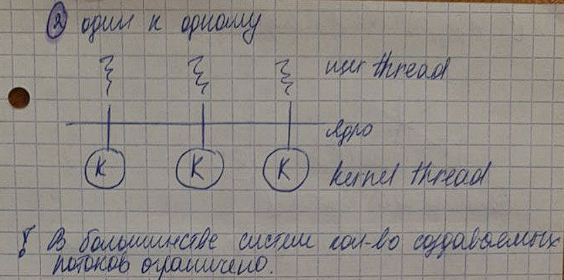 2 один к одному
user thread
ядро
K K K
kernel thread
! В большинстве систем кол-во создаваемых
потоков ограничено.